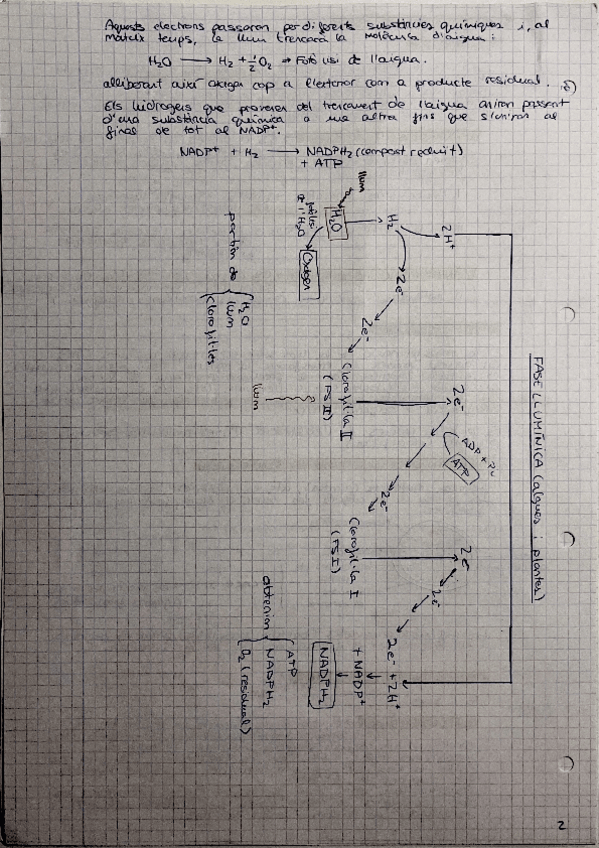 Aquests electrons passaran per diferents substàncies químiques i, al
mateix temps, la llum trencarà la molècula d'aigua:
H₂O → H₂ + ½O₂ ⇒ Fotòlisi de l'aigua.
alliberant així oxigen cap a l'exterior com a producte residual.
Els hidrògens que provenen del trencament de l'aigua aniran passant
d'una substància química a una altra fins que s'uniran al
final de tot al NADP⁺.
NADP⁺ + H₂ → NADPH₂ (compost reduït)
+ ATP
FASE LLUMÍNICA (algues i plantes)
2H⁺
H₂
H₂O
llum
fotòlisi
de l'H₂O
Oxigen
2e⁻
2e⁻
Clorofil·la II
(FS II)
llum
2e⁻
ADP + Pi
ATP
2e⁻
Clorofil·la I
(FS I)
2e⁻
2e⁻
2e⁻ + 2H⁺
+ NADP⁺
NADPH₂
partim de
H₂O
llum
Clorofil·les
obtenim
ATP
NADPH₂
O₂ (residual)
2